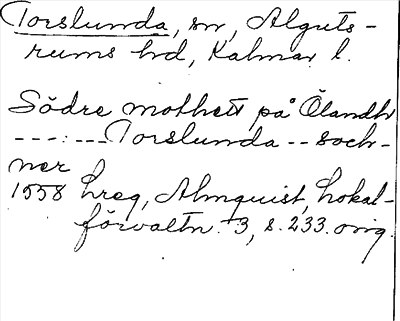 Torslunda, sn, Alguts-
rums hd, Kalmar l.
Södre mothett på Ölandh
---:--- Torslunda -- soch-
ner
1558 hreg, Almquist, Lokal-
förvaltn. 3, s. 233. orig.